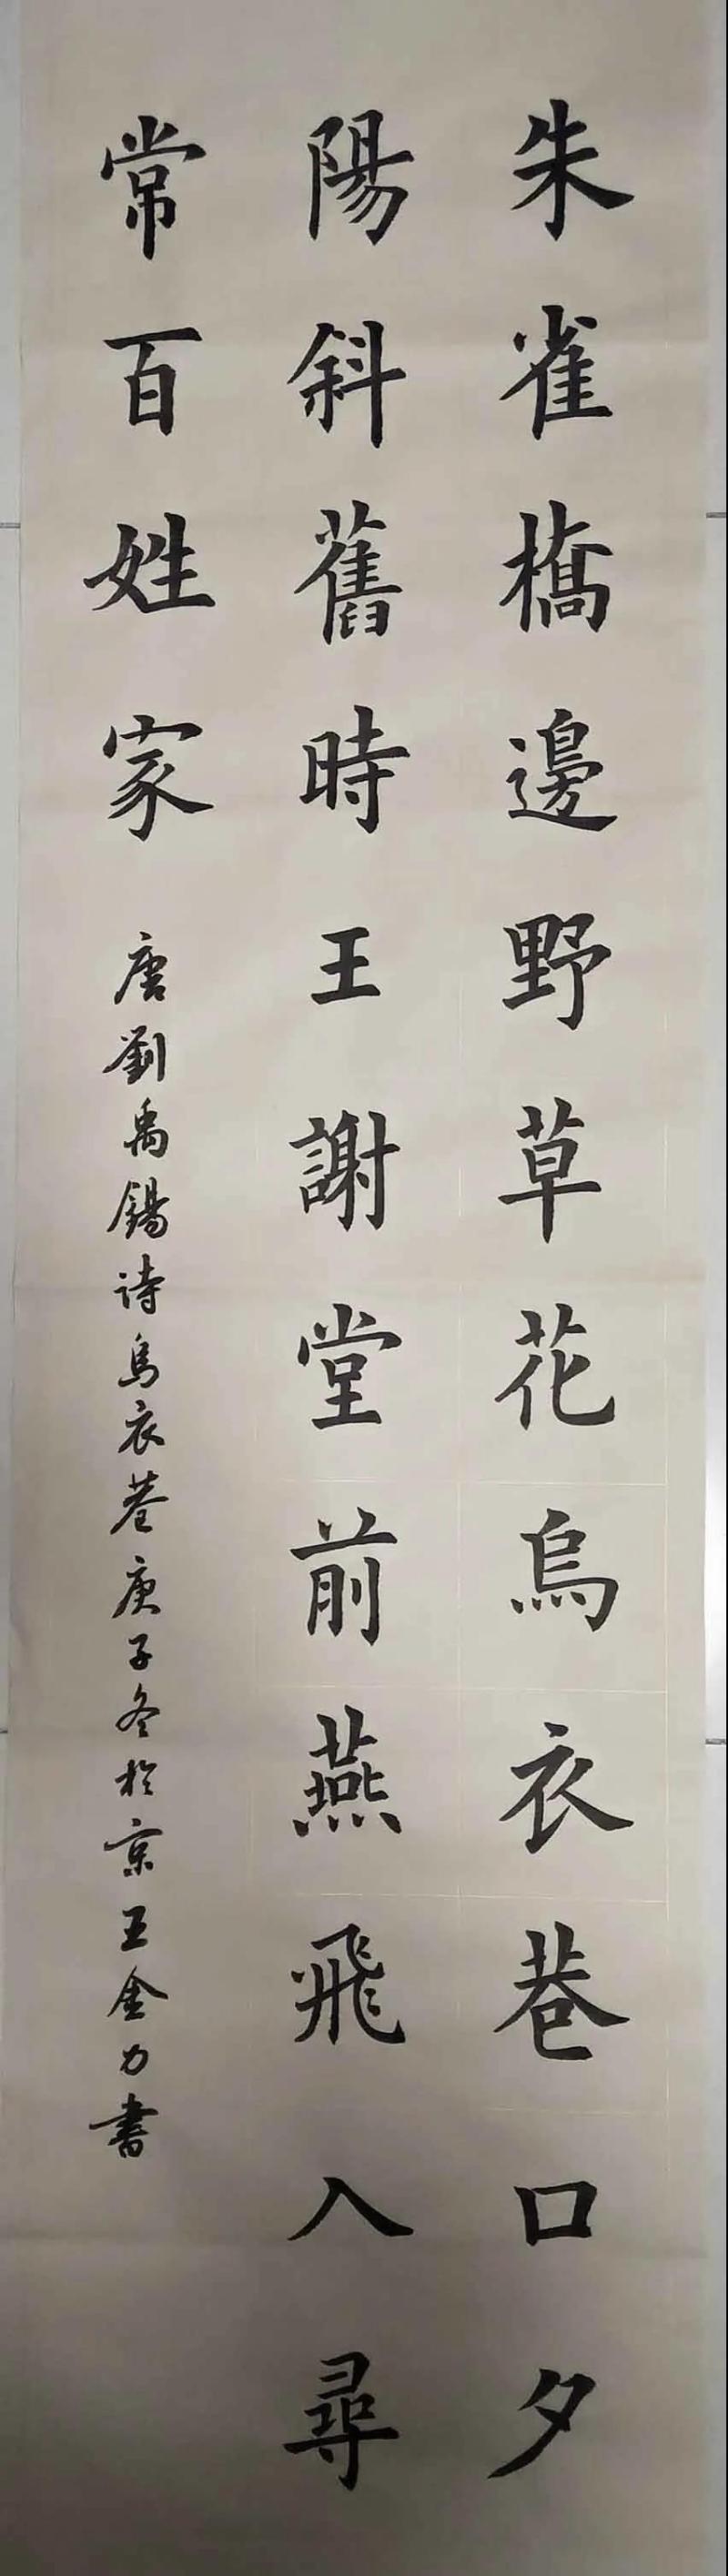 朱雀橋邊野草花烏衣巷口夕
陽斜舊時王謝堂前燕飛入尋
常百姓家
唐劉禹錫诗烏衣巷庚子冬於京王金力書